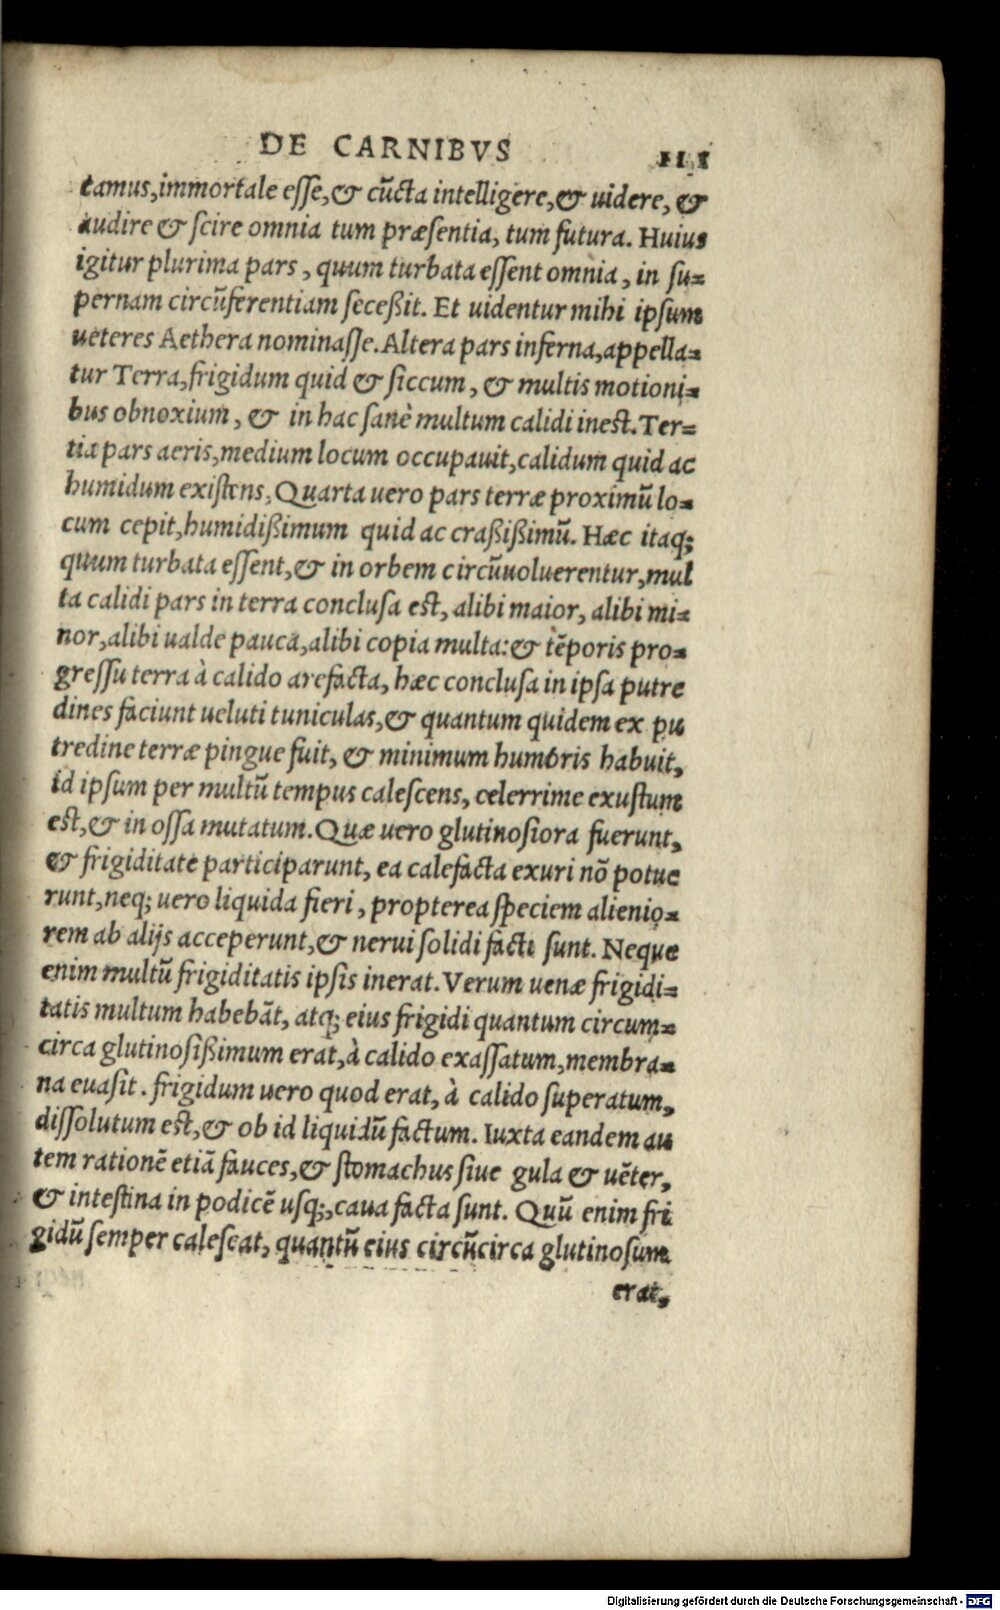 DE CARNIBVS 111
tamus, immortale esse, & cūcta intelligere, & uidere, &
audire & scire omnia tum præsentia, tum futura. Huius
igitur plurima pars, quum turbata essent omnia, in su=
pernam circūferentiam seceßit. Et uidentur mihi ipsum
ueteres Aethera nominasse. Altera pars inferna, appella=
tur Terra, frigidum quid & siccum, & multis motioni=
bus obnoxium, & in hac sanè multum calidi inest. Ter=
tia pars aeris, medium locum occupauit, calidum quid ac
humidum existens, Quarta uero pars terræ proximū lo=
cum cepit, humidißimum quid ac craßißimū. Hæc itaq;
quum turbata essent, & in orbem circūuoluerentur, mul
ta calidi pars in terra conclusa est, alibi maior, alibi mi=
nor, alibi ualde pauca, alibi copia multa: & tēporis pro=
gressu terra à calido arefacta, hæc conclusa in ipsa putre
dines faciunt ueluti tuniculas, & quantum quidem ex pu
tredine terræ pingue fuit, & minimum humoris habuit,
id ipsum per multū tempus calescens, celerrime exustum
est, & in ossa mutatum. Quæ uero glutinosiora fuerunt,
& frigiditate participarunt, ea calefacta exuri nō potue
runt, neq; uero liquida fieri, propterea speciem alienio=
rem ab alijs acceperunt, & nerui solidi facti sunt. Neque
enim multū frigiditatis ipsis inerat. Verum uenæ frigidi=
tatis multum habebāt, atq; eius frigidi quantum circum=
circa glutinosißimum erat, à calido exassatum, membra=
na euasit. frigidum uero quod erat, à calido superatum,
dissolutum est, & ob id liquidū factum. Iuxta eandem au
tem rationē etiā fauces, & stomachus siue gula & uēter,
& intestina in podicē usq;, caua facta sunt. Quū enim fri
gidū semper calescat, quantū eius circūcirca glutinosum
erat,
Digitalisierung gefördert durch die Deutsche Forschungsgemeinschaft - DFG